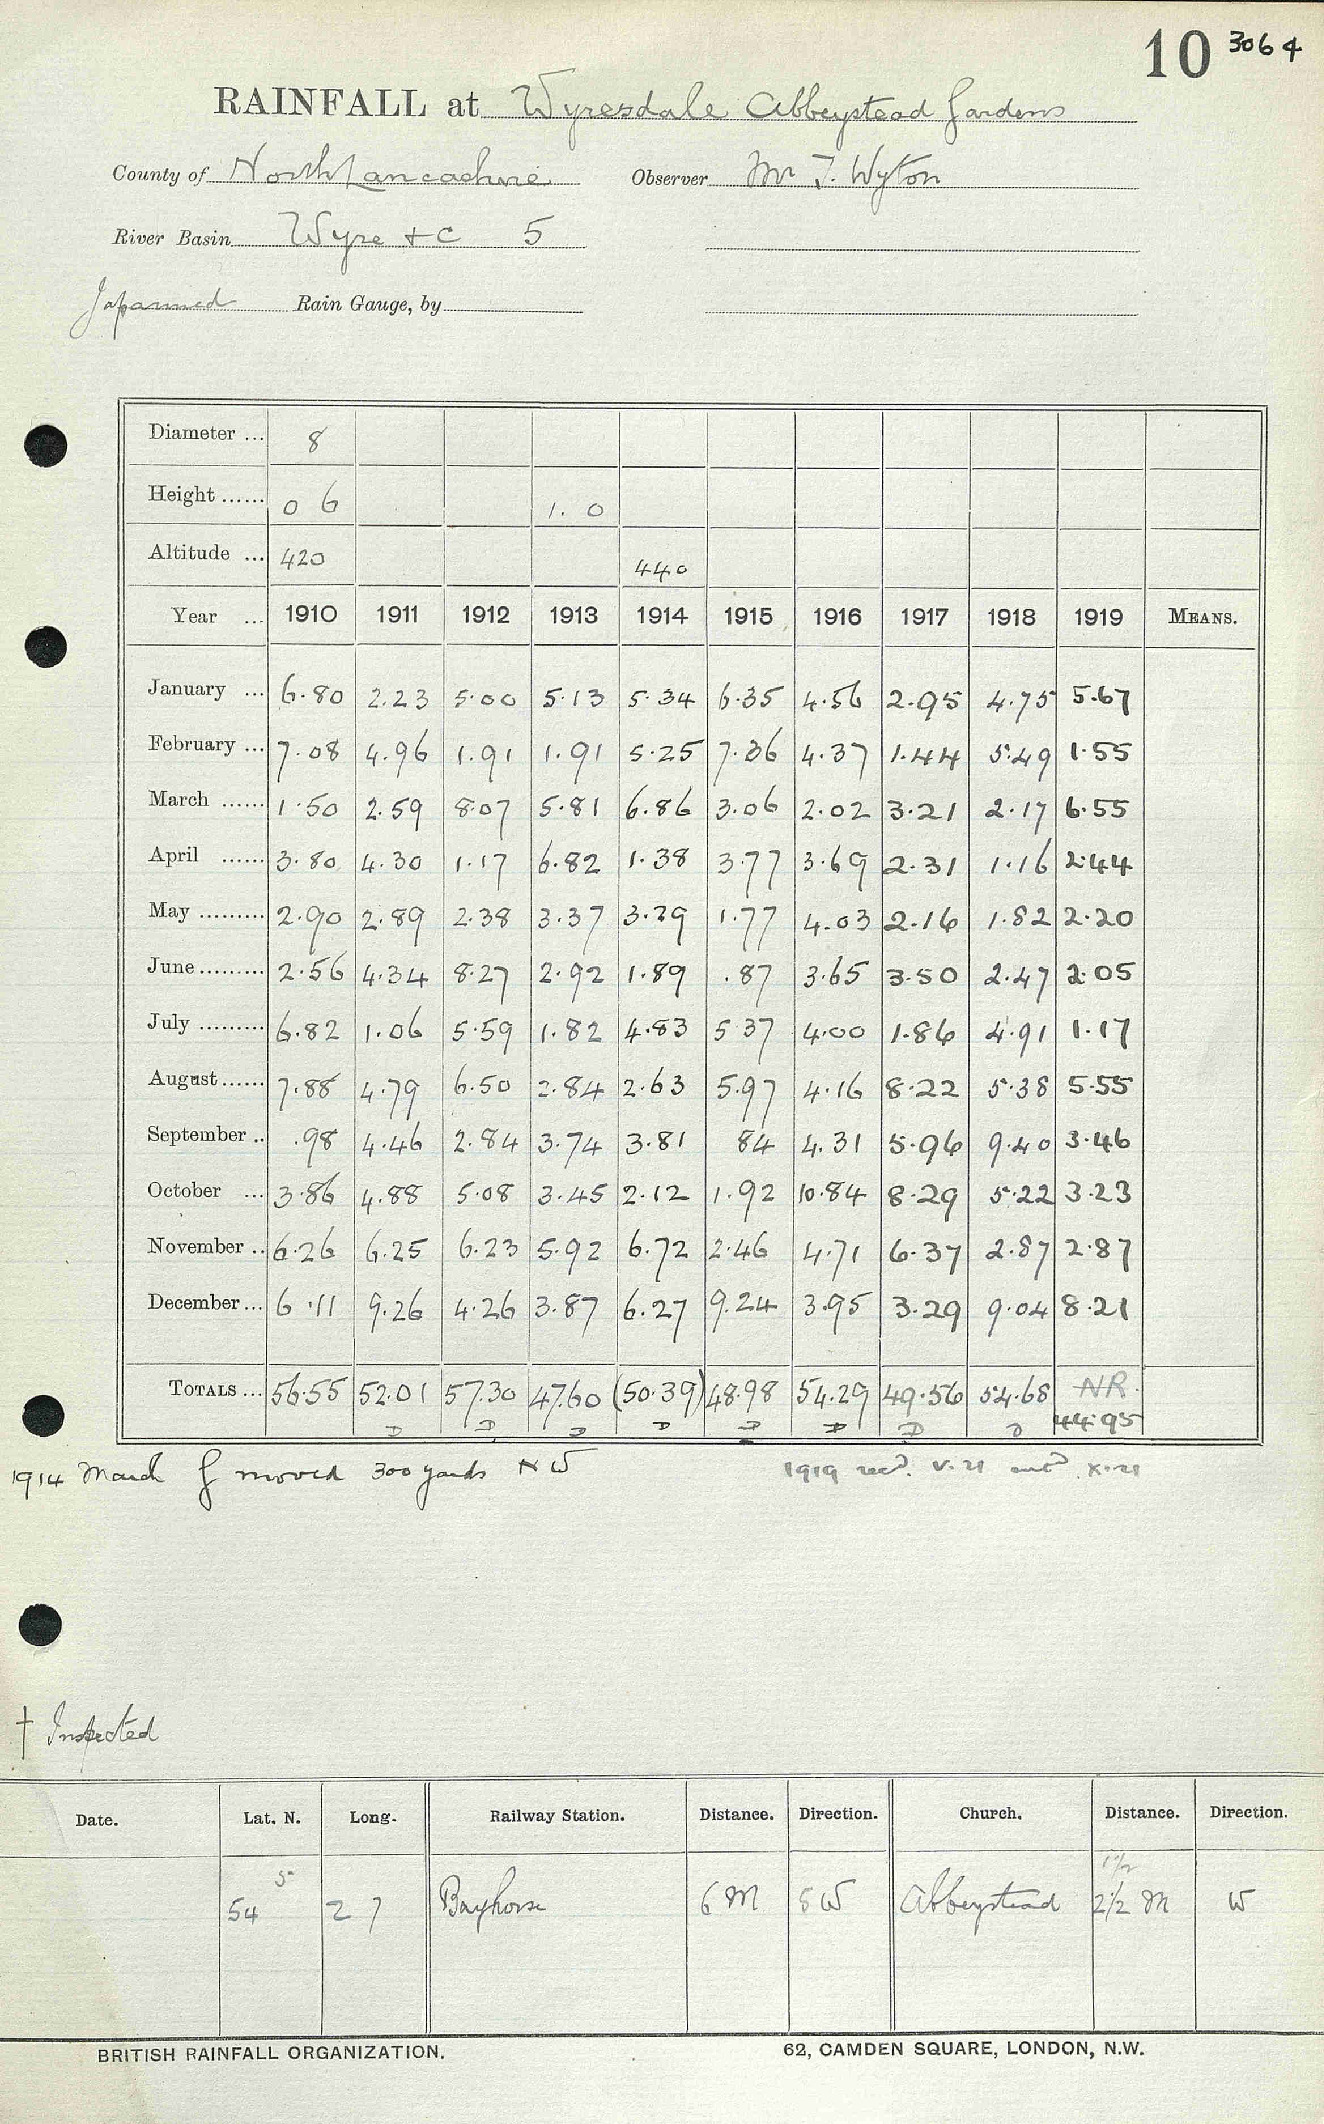 10 3064
RAINFALL at Wyresdale Abbeystead Gardens
County of North Lancashire Observer Mr T. Wyton
River Basin Wyre &c 5
Japanned Rain Gauge, by
Diameter ... 8
Height ...... 0 6 1. 0
Altitude ... 420 440
Year ... 1910 1911 1912 1913 1914 1915 1916 1917 1918 1919 MEANS.
January ... 6.80 2.23 5.00 5.13 5.34 6.35 4.56 2.95 4.75 5.67
February ... 7.08 4.96 1.91 1.91 5.25 7.36 4.37 1.44 5.49 1.55
March ...... 1.50 2.59 8.07 5.81 6.86 3.06 2.02 3.21 2.17 6.55
April ...... 3.80 4.30 1.17 6.82 1.38 3.77 3.69 2.31 1.16 2.44
May ......... 2.90 2.89 2.38 3.37 3.29 1.77 4.03 2.16 1.82 2.20
June ......... 2.56 4.34 8.27 2.92 1.89 .87 3.65 3.50 2.47 2.05
July ......... 6.82 1.06 5.59 1.82 4.83 5.37 4.00 1.86 4.91 1.17
August ...... 7.88 4.79 6.50 2.84 2.63 5.97 4.16 8.22 5.38 5.55
September .. .98 4.46 2.84 3.74 3.81 84 4.31 5.96 9.40 3.46
October ... 3.86 4.88 5.08 3.45 2.12 1.92 10.84 8.29 5.22 3.23
November .. 6.26 6.25 6.23 5.92 6.72 2.46 4.71 6.37 2.87 2.87
December ... 6.11 9.26 4.26 3.87 6.27 9.24 3.95 3.29 9.04 8.21
TOTALS ... 56.55 52.01 57.30 47.60 (50.39) 48.98 54.29 49.56 54.68 NR.
D D D D D D D D 44.95
1914 March G moved 300 yards NW 1919 recd. V.21 X.21
† Inspected
Date. Lat. N. Long. Railway Station. Distance. Direction. Church. Distance. Direction.
5 1½
54 2 7 Bayhorse 6 M SW Abbeystead 2½ M W
BRITISH RAINFALL ORGANIZATION. 62, CAMDEN SQUARE, LONDON, N.W.